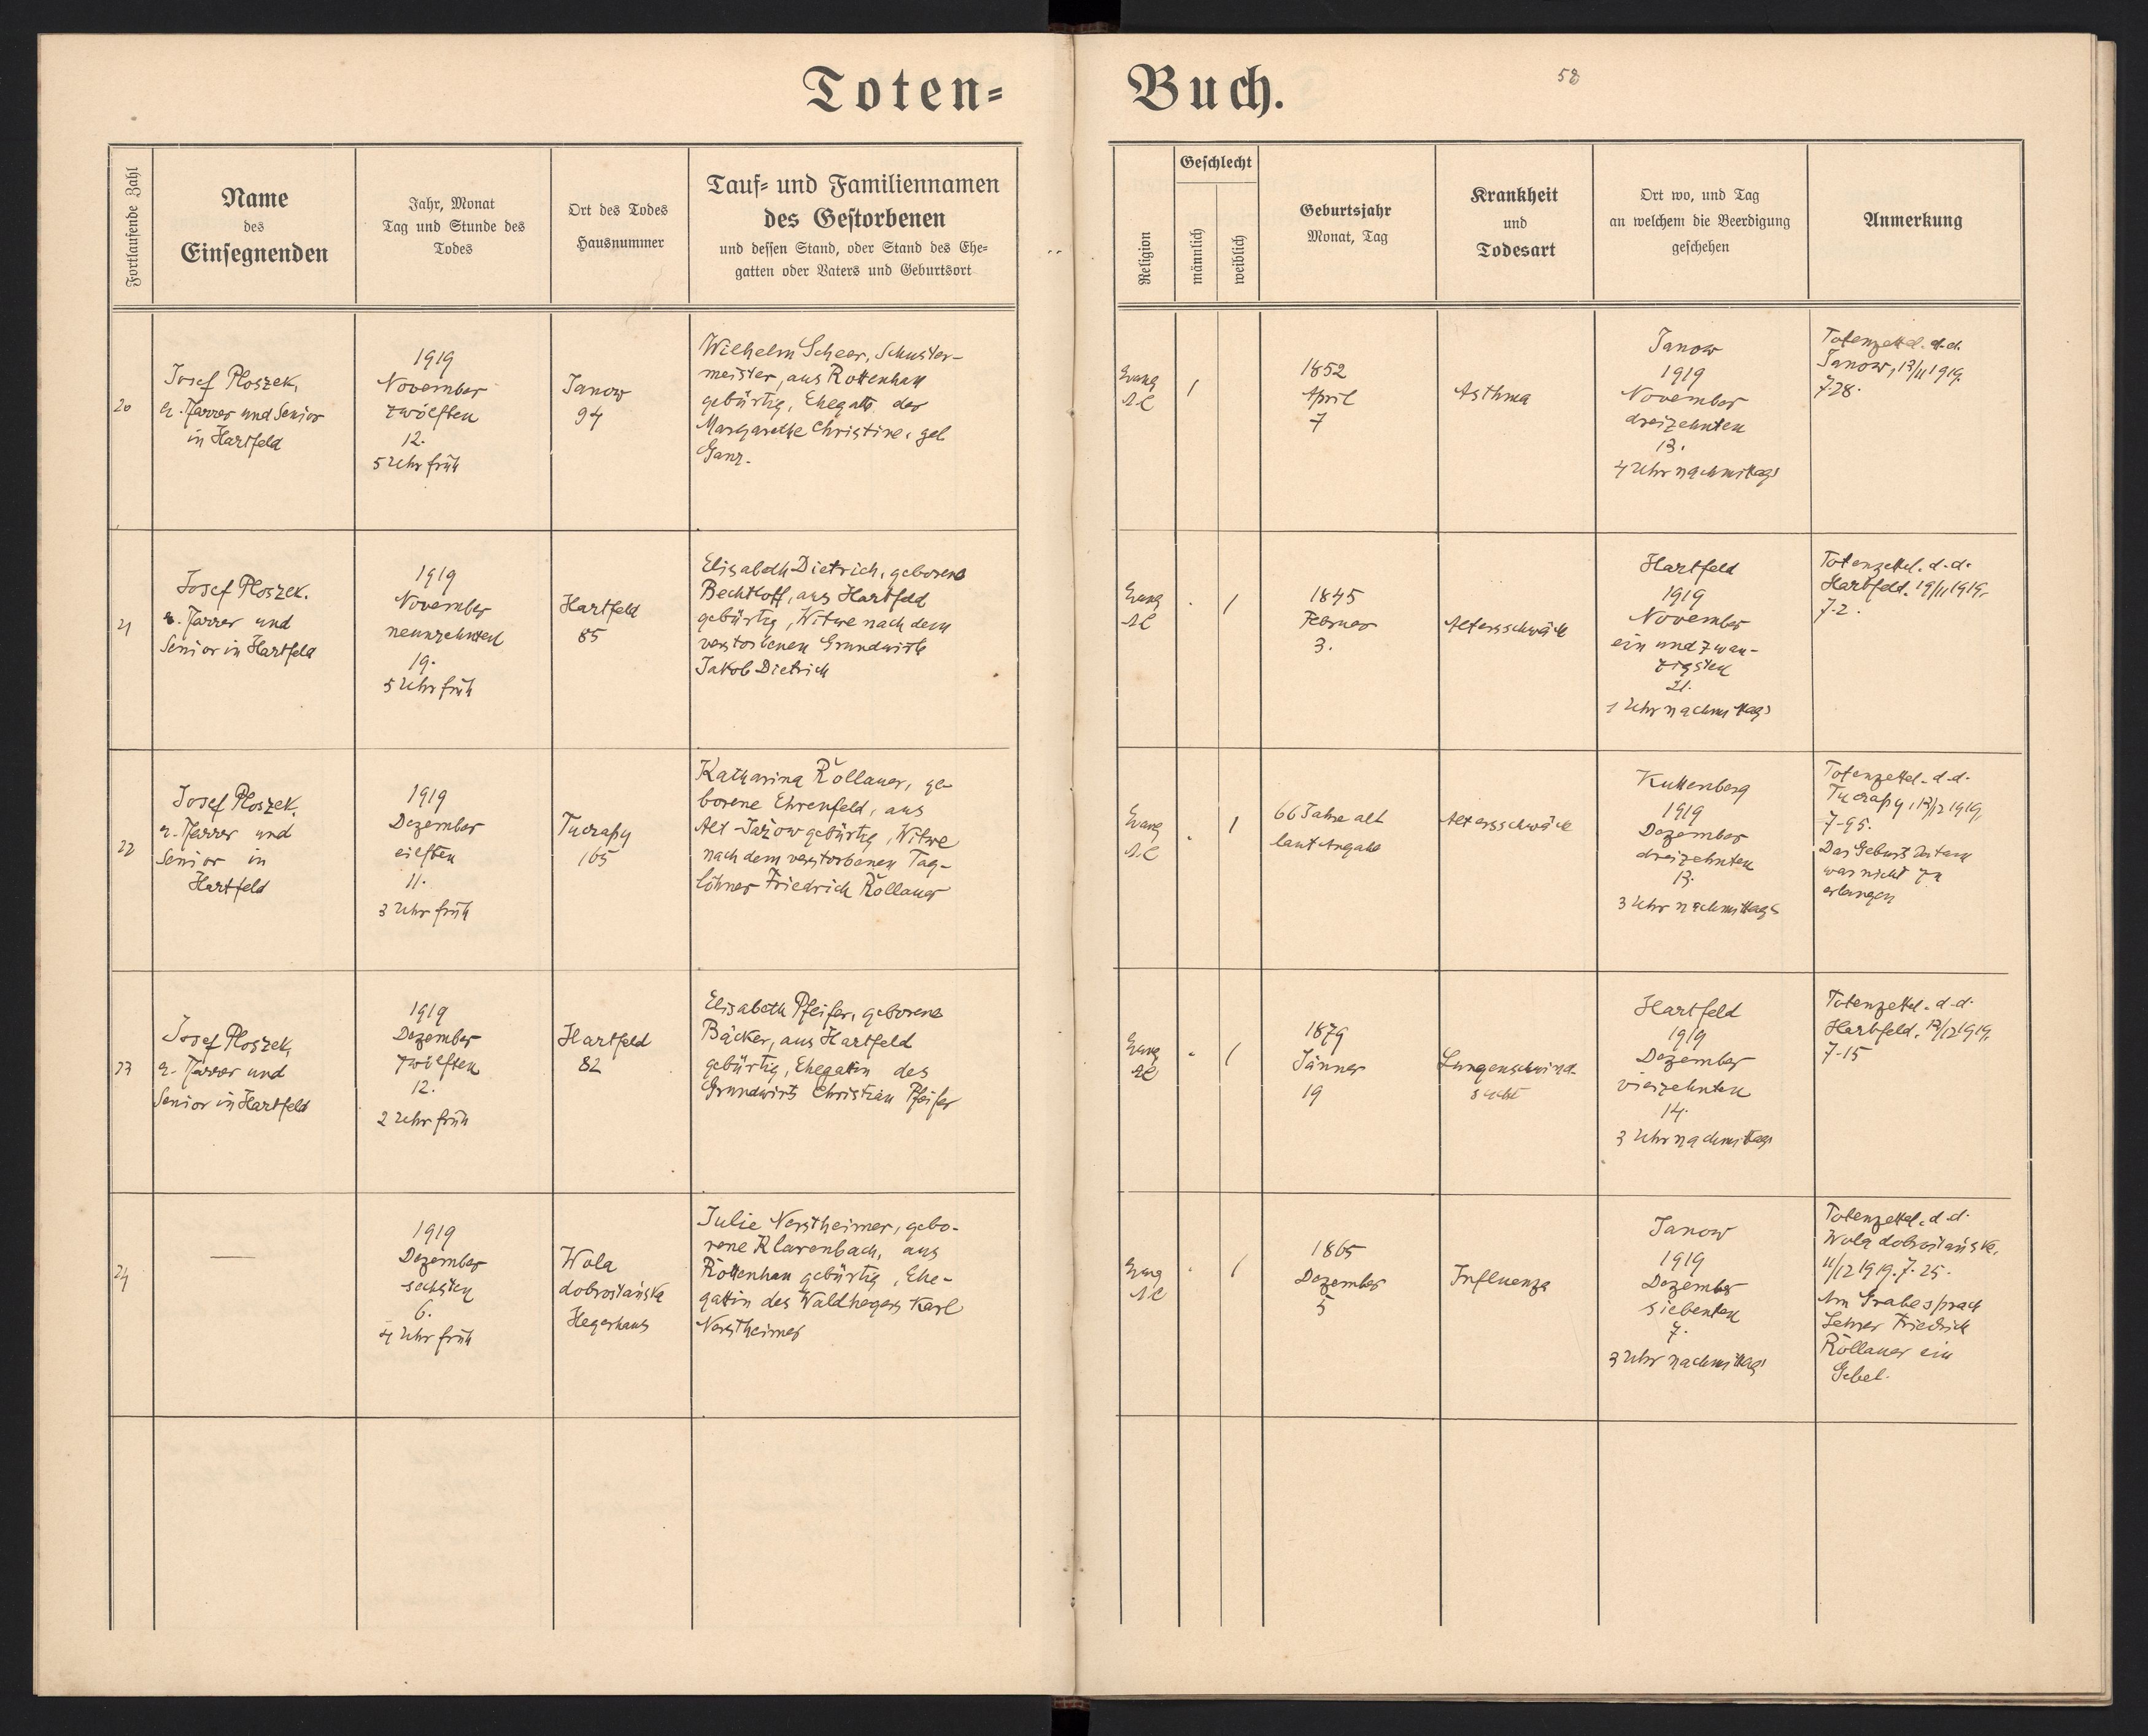 Toten=
Buch.
58
Fortlaufende Zahl
Name
des
Einsegnenden
Jahr, Monat
Tag und Stunde des
Todes
Ort des Todes
Hausnummer
Tauf= und Familiennamen
des Gestorbenen
und dessen Stand, oder Stand des Ehe=
gatten oder Vaters und Geburtsort
Religion
Geschlecht
männlich
weiblich
Geburtsjahr
Monat, Tag
Krankheit
und
Todesart
Ort wo, und Tag
an welchem die Beerdigung
geschehen
Anmerkung
20
Josef Ploszek,
e. Pfarrer und Senior
in Hartfeld
1919
November
zwölften
12.
5 Uhr früh
Janow
94
Wilhelm Scheer, Schuster-
meister, aus Rottenhan
gebürtig, Ehegatte der
Margarethe Christine, geb
Ganz.
Evang
A.C
1
1852
April
7
Asthma
Janow
1919
November
dreizehnten
13.
4 Uhr nachmittags
Totenzettel. d.d.
Janow, 13/11 1919.
7-28.
21
Josef Ploszek.
e. Pfarrer und
Senior in Hartfeld
1919
November
neunzehnten
19.
5 Uhr früh
Hartfeld
85
Elisabeth Dietrich, geborene
Bechtloff, aus Hartfeld
gebürtig, Witwe nach dem
verstorbenen Grundwirth
Jakob Dietrich
Evang
A.C
1
1845
Februar
3.
Altersschwäche
Hartfeld
1919
November
ein und zwan-
zigsten
21.
1 Uhr nachmittags
Totenzettel. d.d.
Hartfeld. 19/11 1919.
7-2.
22
Josef Ploszek.
e. Pfarrer und
Senior in
Hartfeld
1919
Dezember
eilften
11.
3 Uhr früh
Tuczapy
165
Katharina Röllauer, ge-
borene Ehrenfeld, aus
Alt-Jażow gebürtig, Witwe
nach dem verstorbenen Tag-
löhner Friedrich Röllauer
Evang
A.C
1
66 Jahre alt
laut Angabe
Altersschwäche
Kuttenberg
1919
Dezember
dreizehnten
13.
3 Uhr nachmittags
Totenzettel. d.d.
Tuczapy, 12/12 1919,
7-95.
Das Geburtsdatum
war nicht zu
erlangen
23
Josef Ploszek,
e. Pfarrer und
Senior in Hartfeld
1919
Dezember
zwölften
12.
2 Uhr früh
Hartfeld
82
Elisabeth Pfeifer, geborene
Bäcker, aus Hartfeld
gebürtig, Ehegattin des
Grundwirts Christian Pfeifer
Evang
AC
1
1879
Jänner
19
Lungenschwind-
sucht
Hartfeld
1919
Dezember
vierzehnten
14.
3 Uhr nachmittags
Totenzettel. d.d.
Hartfeld. 12/12 1919.
7-15
24
1919
Dezember
sechsten
6.
4 Uhr früh
Wola
dobrostańska
Hegerhaus
Julie Nerstheimer, gebo-
rene Klarenbach, aus
Rottenhan gebürtig, Ehe-
gattin des Waldhegers Karl
Nerstheimer
Evang
A.C
1
1865
Dezember
5
Influenza
Janow
1919
Dezember
siebenten
7.
3 Uhr nachmittags
Totenzettel. d.d.
Wola dobrostańska.
11/12 1919. 7-25.
Am Grabe sprach
Lehrer Friedrich
Röllauer ein
Gebet.